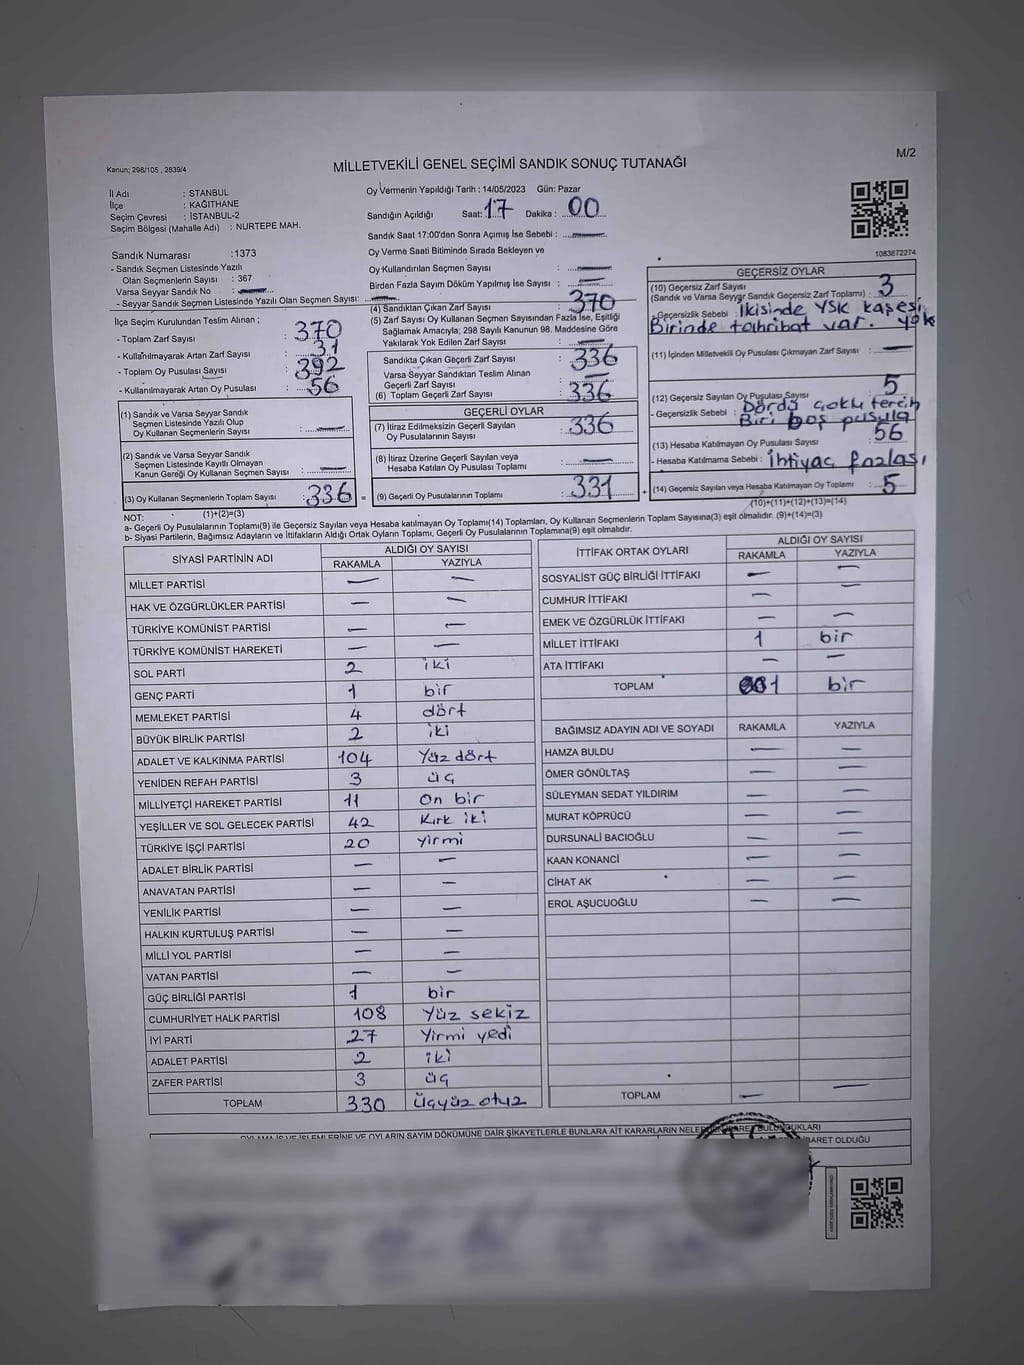 M/2
Kanun; 298/105 , 2839/4
MİLLETVEKİLİ GENEL SEÇİMİ SANDIK SONUÇ TUTANAĞI
İl Adı : İSTANBUL
İlçe : KAĞITHANE
Seçim Çevresi : İSTANBUL-2
Seçim Bölgesi (Mahalle Adı) : NURTEPE MAH.
Oy Vermenin Yapıldığı Tarih : 14/05/2023 Gün: Pazar
Sandığın Açıldığı Saat: 17 Dakika : 00
Sandık Saat 17:00'den Sonra Açımış İse Sebebi : —
Oy Verme Saati Bitiminde Sırada Bekleyen ve
Oy Kullandırılan Seçmen Sayısı : —
Birden Fazla Sayım Döküm Yapılmış İse Sayısı : —
1083672274
Sandık Numarası :1373
- Sandık Seçmen Listesinde Yazılı
Olan Seçmenlerin Sayısı : 367
Varsa Seyyar Sandık No : —
- Seyyar Sandık Seçmen Listesinde Yazılı Olan Seçmen Sayısı: —
İlçe Seçim Kurulundan Teslim Alınan ;
- Toplam Zarf Sayısı : 370
- Kullanılmayarak Artan Zarf Sayısı : 31
- Toplam Oy Pusulası Sayısı : 392
- Kullanılmayarak Artan Oy Pusulası : 56
(1) Sandık ve Varsa Seyyar Sandık
Seçmen Listesinde Yazılı Olup
Oy Kullanan Seçmenlerin Sayısı : —
(2) Sandık ve Varsa Seyyar Sandık
Seçmen Listesinde Kayıtlı Olmayan
Kanun Gereği Oy Kullanan Seçmen Sayısı : —
(3) Oy Kullanan Seçmenlerin Toplam Sayısı : 336 =
(1)+(2)=(3)
(4) Sandıktan Çıkan Zarf Sayısı : 370
(5) Zarf Sayısı Oy Kullanan Seçmen Sayısından Fazla İse, Eşitliği
Sağlamak Amacıyla; 298 Sayılı Kanunun 98. Maddesine Göre
Yakılarak Yok Edilen Zarf Sayısı : —
Sandıkta Çıkan Geçerli Zarf Sayısı : 336
Varsa Seyyar Sandıktan Teslim Alınan
Geçerli Zarf Sayısı : —
(6) Toplam Geçerli Zarf Sayısı : 336
GEÇERLİ OYLAR
(7) İtiraz Edilmeksizin Geçerli Sayılan
Oy Pusulalarının Sayısı : 336
(8) İtiraz Üzerine Geçerli Sayılan veya
Hesaba Katılan Oy Pusulası Toplamı : —
(9) Geçerli Oy Pusulalarının Toplamı : 331 +
GEÇERSİZ OYLAR
(10) Geçersiz Zarf Sayısı
(Sandık ve Varsa Seyyar Sandık Geçersiz Zarf Toplamı) : 3
- Geçersizlik Sebebi : İkisinde YSK kaşesi yok
Birinde tahribat var.
(11) İçinden Milletvekili Oy Pusulası Çıkmayan Zarf Sayısı : —
(12) Geçersiz Sayılan Oy Pusulası Sayısı : 5
- Geçersizlik Sebebi : Dördü çoklu tercih
Biri boş pusula
(13) Hesaba Katılmayan Oy Pusulası Sayısı : 56
- Hesaba Katılmama Sebebi : İhtiyaç fazlası
(14) Geçersiz Sayılan veya Hesaba Katılmayan Oy Toplamı : 5
(10)+(11)+(12)+(13)=(14)
NOT:
a- Geçerli Oy Pusulalarının Toplamı(9) ile Geçersiz Sayılan veya Hesaba katılmayan Oy Toplamı(14) Toplamları, Oy Kullanan Seçmenlerin Toplam Sayısına(3) eşit olmalıdır. (9)+(14)=(3)
b- Siyasi Partilerin, Bağımsız Adayların ve İttifakların Aldığı Ortak Oyların Toplamı, Geçerli Oy Pusulalarının Toplamına(9) eşit olmalıdır.
SİYASİ PARTİNİN ADI ALDIĞI OY SAYISI
RAKAMLA YAZIYLA
MİLLET PARTİSİ — —
HAK VE ÖZGÜRLÜKLER PARTİSİ — —
TÜRKİYE KOMÜNİST PARTİSİ — —
TÜRKİYE KOMÜNİST HAREKETİ — —
SOL PARTİ 2 iki
GENÇ PARTİ 1 bir
MEMLEKET PARTİSİ 4 dört
BÜYÜK BİRLİK PARTİSİ 2 iki
ADALET VE KALKINMA PARTİSİ 104 Yüz dört
YENİDEN REFAH PARTİSİ 3 üç
MİLLİYETÇİ HAREKET PARTİSİ 11 On bir
YEŞİLLER VE SOL GELECEK PARTİSİ 42 Kırk iki
TÜRKİYE İŞÇİ PARTİSİ 20 yirmi
ADALET BİRLİK PARTİSİ — —
ANAVATAN PARTİSİ — —
YENİLİK PARTİSİ — —
HALKIN KURTULUŞ PARTİSİ — —
MİLLİ YOL PARTİSİ — —
VATAN PARTİSİ — —
GÜÇ BİRLİĞİ PARTİSİ 1 bir
CUMHURİYET HALK PARTİSİ 108 Yüz sekiz
İYİ PARTİ 27 Yirmi yedi
ADALET PARTİSİ 2 iki
ZAFER PARTİSİ 3 üç
TOPLAM 330 Üçyüz otuz
İTTİFAK ORTAK OYLARI ALDIĞI OY SAYISI
RAKAMLA YAZIYLA
SOSYALİST GÜÇ BİRLİĞİ İTTİFAKI — —
CUMHUR İTTİFAKI — —
EMEK VE ÖZGÜRLÜK İTTİFAKI — —
MİLLET İTTİFAKI 1 bir
ATA İTTİFAKI — —
TOPLAM 1 bir
BAĞIMSIZ ADAYIN ADI VE SOYADI RAKAMLA YAZIYLA
HAMZA BULDU — —
ÖMER GÖNÜLTAŞ — —
SÜLEYMAN SEDAT YILDIRIM — —
MURAT KÖPRÜCÜ — —
DURSUNALİ BACIOĞLU — —
KAAN KONANCİ — —
CİHAT AK — —
EROL AŞUCUOĞLU — —
TOPLAM — —
OYLAMA İŞ VE İŞLEMLERİNE VE OYLARIN SAYIM DÖKÜMÜNE DAİR ŞİKAYETLERLE BUNLARA AİT KARARLARIN NELERDEN İBARET BULUNDUKLARI
İBARET OLDUĞU